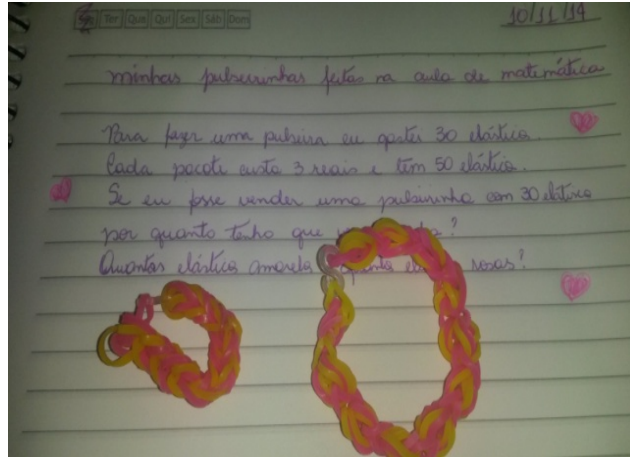 Seg Ter Qua Qui Sex Sáb Dom
10/11/14
minhas pulseirinhas feitas na aula de matemática
Para fazer uma pulseira eu gastei 30 elástico.
Cada pacote custa 3 reais e têm 50 elástico.
Se eu fosse vender uma pulseirinha com 30 elástico
por quanto tenho que ?
Quantas elástica amarela rosas?